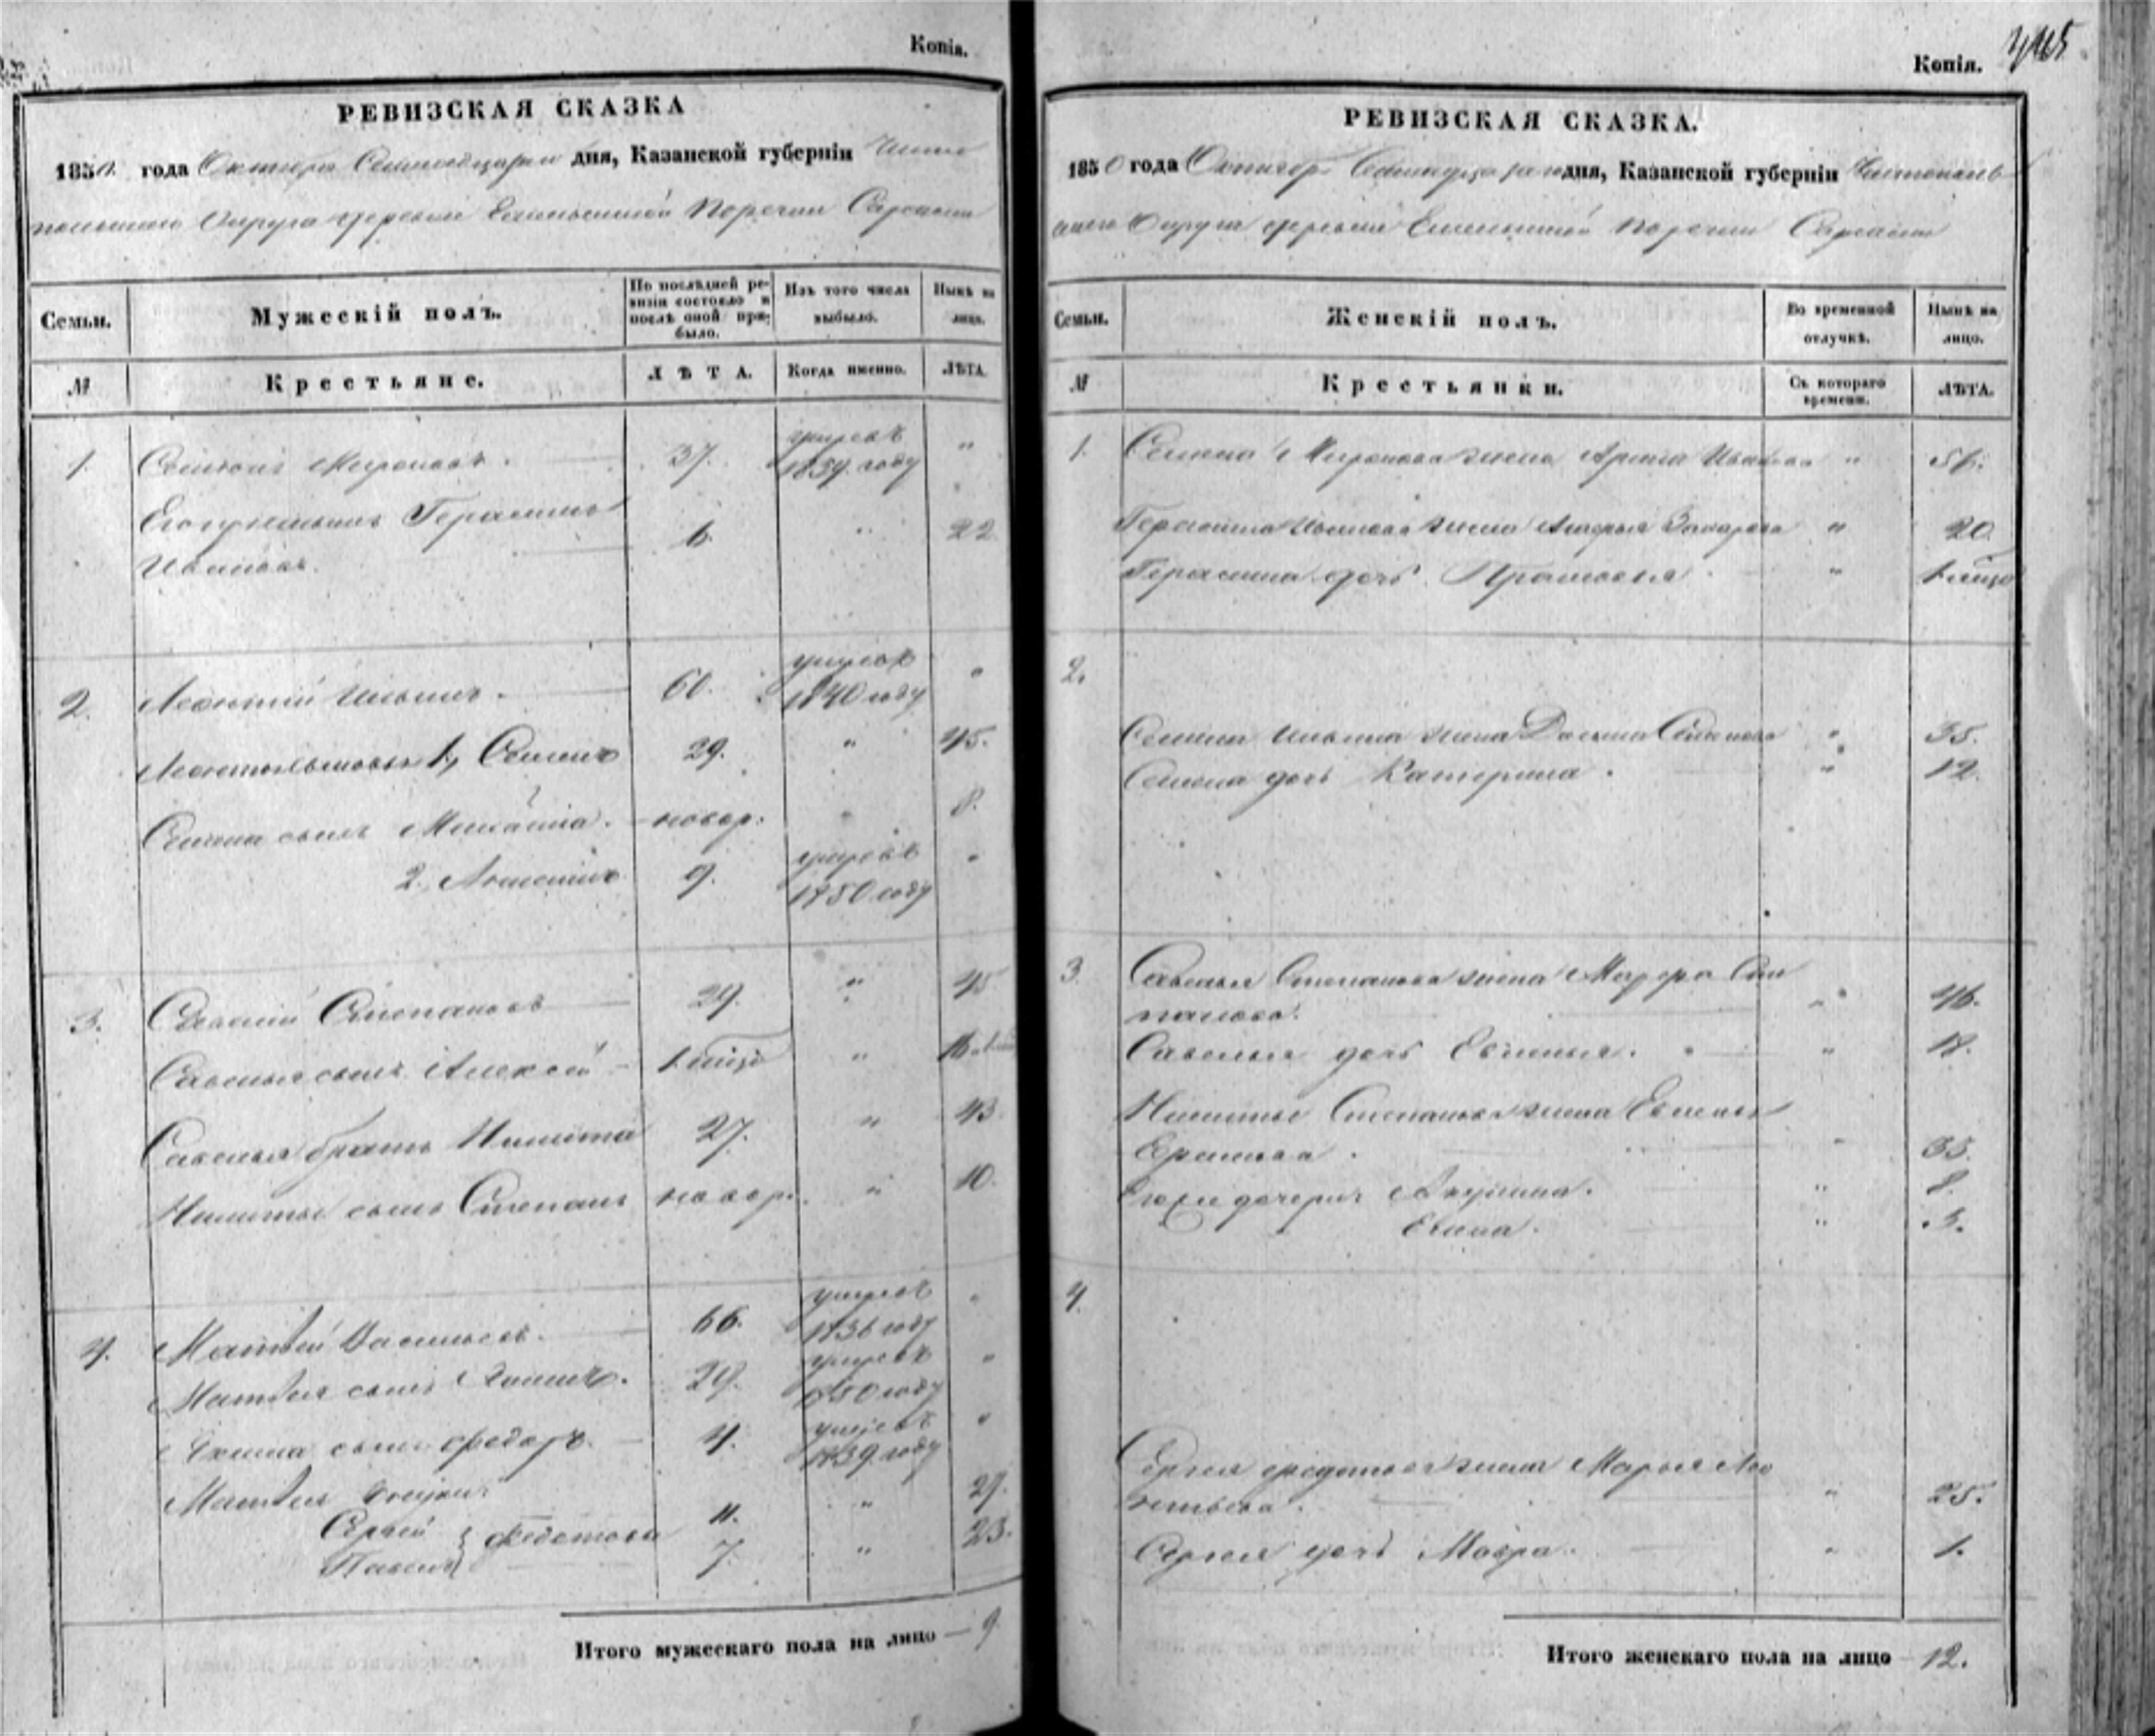 Копія.
РЕВИЗСКАЯ СКАЗКА
1850 года Октября Семнадцатаго дня, Казанской губерніи Чисто
польскаго Округа деревни Сарсазы
Семьи.
Мужескій полъ.
По послѣдней ре-
визіи состояло и
послѣ оной при-
было.
Изъ того числа
выбыло.
Нынѣ на
лицо.
№
Крестьяне.
ЛѢТА.
Когда именно.
ЛѢТА.
1. Семенъ Мироновъ. 37. умеръ въ 1839. году "
Герасимъ
Ивановъ. 6. " 22
2. Леонтій Ильинъ. 60. умеръ въ 1840 году "
1, Семенъ 29. " 45.
Семена сынъ Михайла. новор. " 8.
2, 9. умеръ въ 1850 году "
3. Савелій Степановъ 29. " 45
Савелья сынъ Алексей "
Савелья братъ Никита 27. " 43.
Никиты сынъ Степанъ новор. " 10.
4. Матвей Васильевъ. 66. умеръ въ 1836 году "
Матвея сынъ 29. умеръ въ 1850 году "
сынъ Федоръ. 4. умеръ въ 1839 году "
Матвея внуки
Сергей } Федотовы 11. " 27.
Павелъ 7. " 23.
Итого мужескаго пола на лицо — 9
Копія.
РЕВИЗСКАЯ СКАЗКА.
1850 года Октября Семнадцатаго дня, Казанской губерніи Чистополь
скаго Округа деревни Сарсазы
Семьи.
Женскій полъ.
Во временной
отлучкѣ.
Нынѣ на
лицо.
№
Крестьянки.
Съ котораго
времени.
ЛѢТА.
1. Семена Миронова жена Арина Иванова " 51.
Герасима Иванова жена Захарова " 20.
Герасима дочь Прасковья "
2.
Семена Ильина жена Степанова " 35.
Семена дочь Катерина. " 12.
3. Савелья Степанова жена Сте
панова. " 46.
Савелья дочь Евгенья. " 18.
Никиты Степанова жена
" 35.
дочери Акулина. " 8.
" 3.
4.
Сергея Федотова жена Марья Лео
нтьева. " 25.
Сергея дочь Мавра. " 1.
Итого женскаго пола на лицо 12.